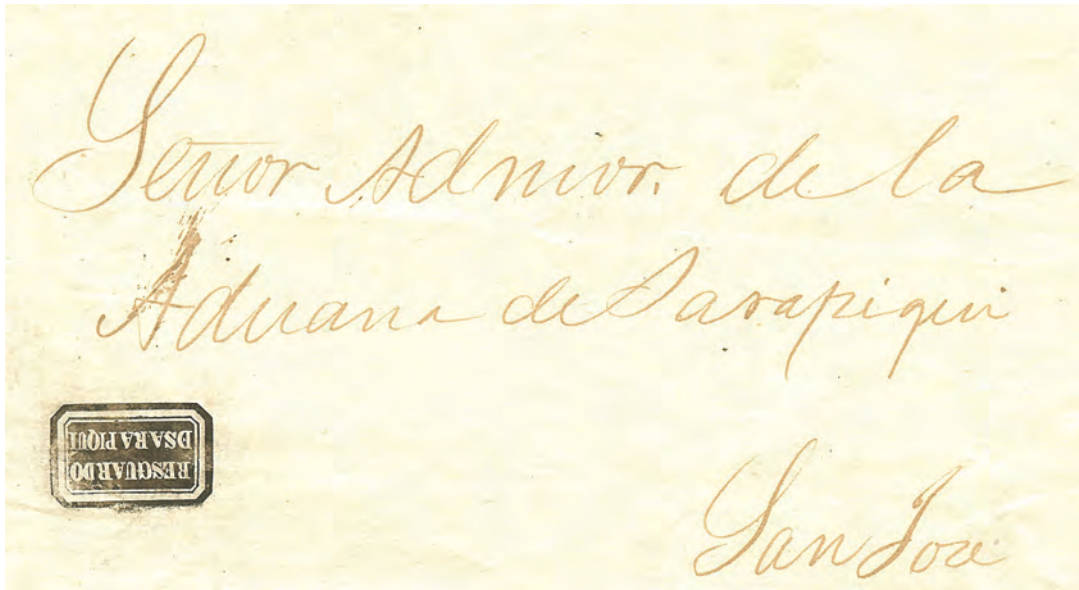 Señor Admor. de la
Aduana de Sarapiqui
RESGUARDO
DSARAPIQUI
San Jose